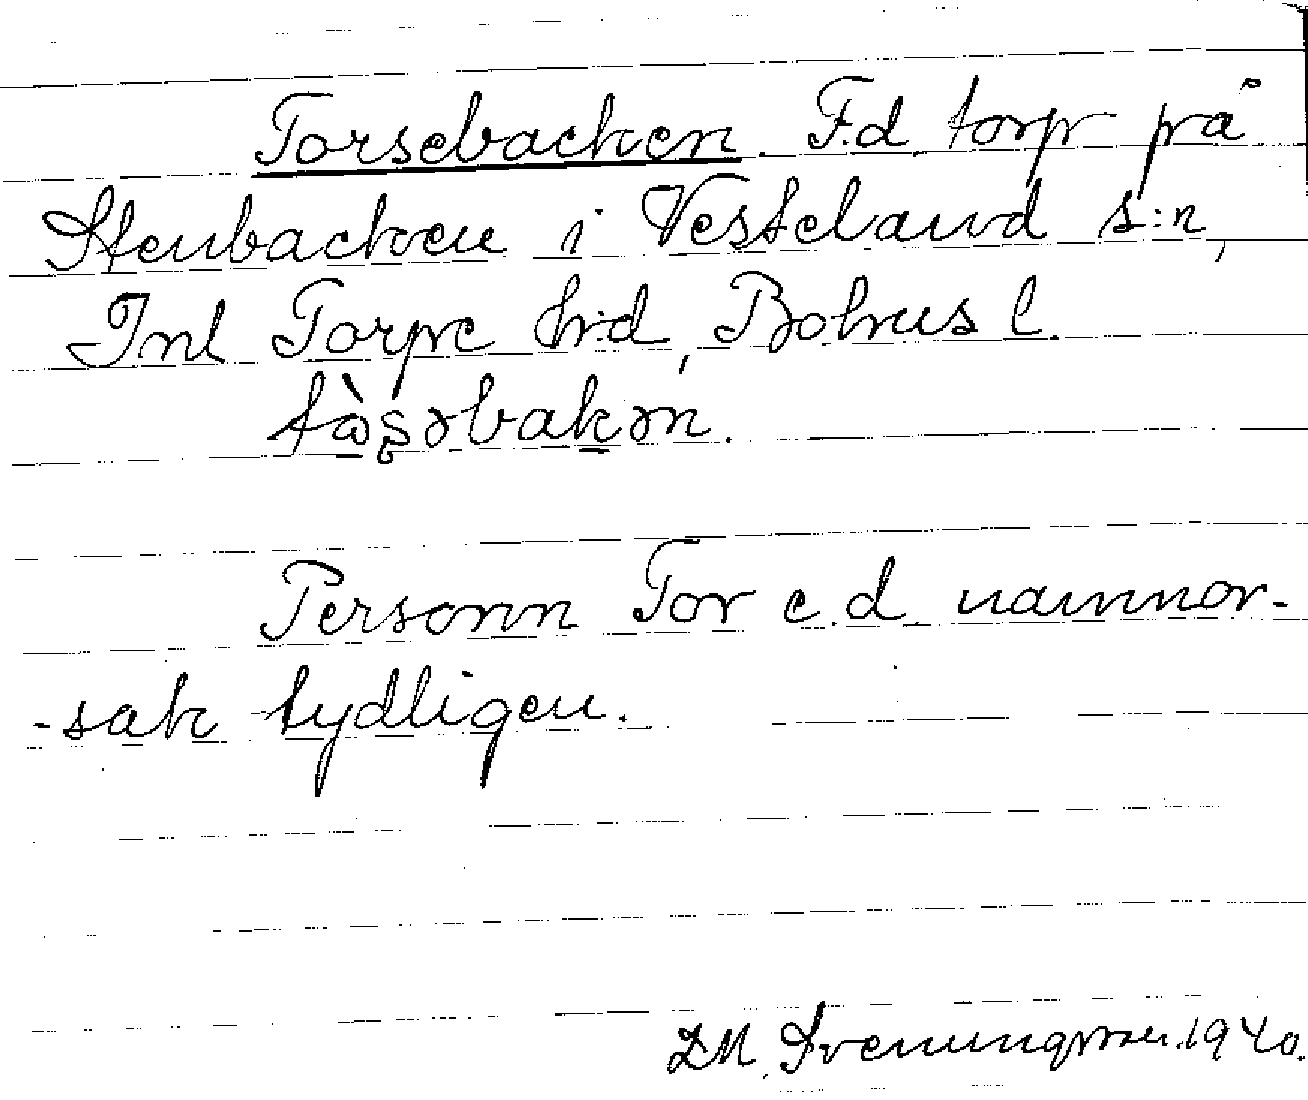 Torsebacken. F.d. torp på
Stenbacken i Vesteland s:n,
Inl Torpe h:d, Bohus l.
tɷ̀ʂəbakən.
Personn Tor e.d. namnor-
-sak tydligen.
Svenungsson. 1940.